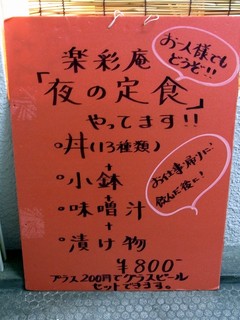 お一人様でも
どうぞ…!!
楽彩庵
「夜の定食」
やってます!!
丼(13種類)
+
小鉢
+
味噌汁
+
漬け物
お仕事帰りに!
飲んだ後に!
¥800-
プラス200円でグラスビール
セットできます。